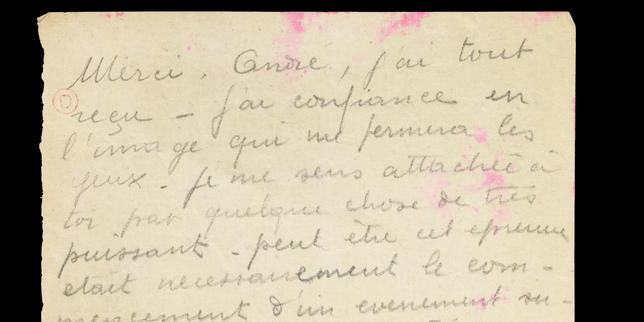 Merci, André, j'ai tout
reçu - j'ai confiance en
l'image qui me fermera les
yeux - je me sens attachée à
toi par quelque chose de très
puissant - peut être cet epreuve
etait necessairement le com-
mencement d'un evenement su-